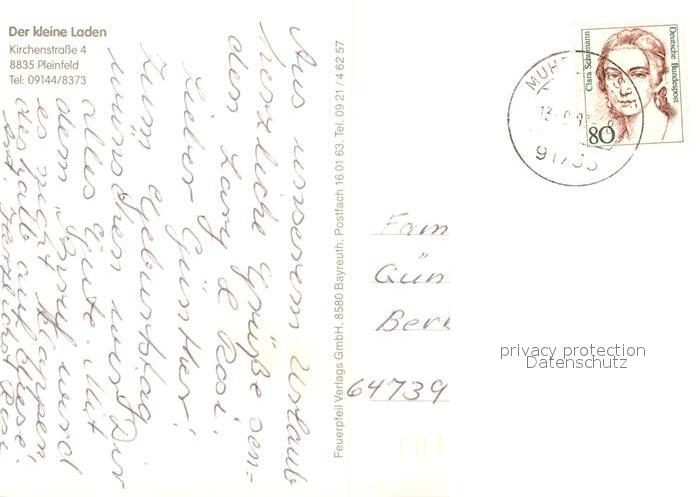 Der kleine Laden
Kirchenstraße 4
8835 Pleinfeld
Tel: 09144/8373
Aus unserem Urlaub
herzliche Grüße sen=
den Larry & Rosi.
Lieber Günther!
Zum Geburtstag
wünschen wir Dir
alles Gute. Mit
dem Anruf wird
es nicht klappen
deshalb auf diese
Feuerpfeil Verlags GmbH, 8580 Bayreuth, Postfach 16 01 63, Tel. 09 21 / 4 62 57
Clara Schumann
Deutsche Bundespost
80
MUH
13
Fam
Gün
Ber
64739
privacy protection
Datenschutz